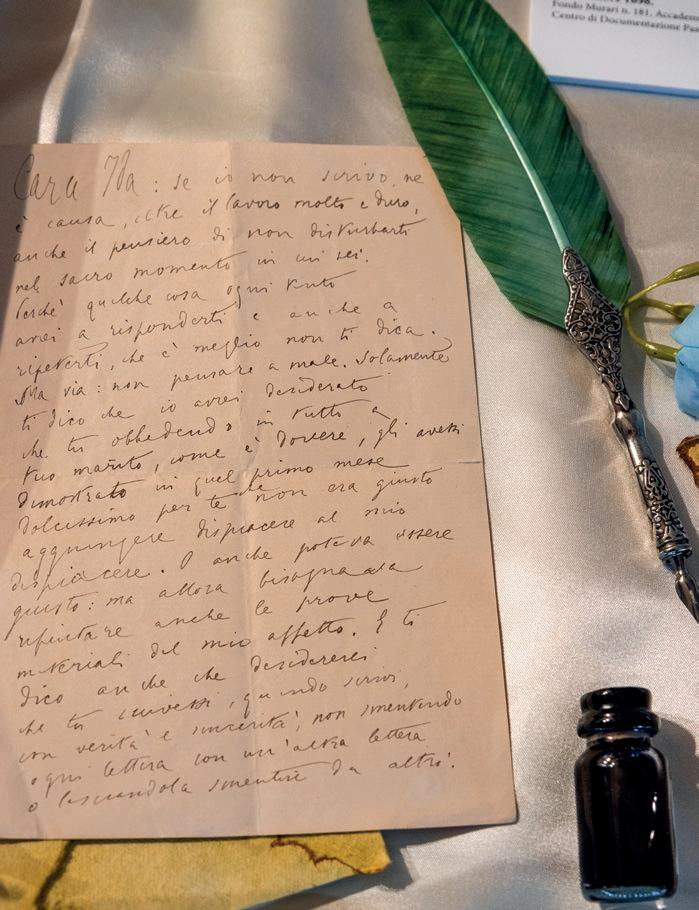 1898.
Fondo Murari n. 181, Accade
Centro di Documentazione Pas
Cara Ida: se io non scrivo, ne
è causa, oltre il lavoro molto e duro,
anche il pensiero di non disturbarti
nel sacro momento in cui sei.
Perchè qualche cosa ogni tanto
avrei a risponderti e anche a
ripeterti, che è meglio non ti dica.
Ma via: non pensare a male. Solamente
ti dico che io avrei desiderato
che tu obbedendo in tutto a
tuo marito, come è dovere, gli avessi
dimostrato in quel primo mese
dolcissimo per te che non era giusto
aggiungere dispiacere al mio
dispiacere. O anche poteva essere
giusto: ma allora bisognava
rifiutare anche le prove
materiali del mio affetto. E ti
dico anche che desidererei
che tu scrivessi, quando scrivi,
con verità e sincerità, non smentendo
ogni lettera con un'altra lettera
o lasciandola smentire da altri.